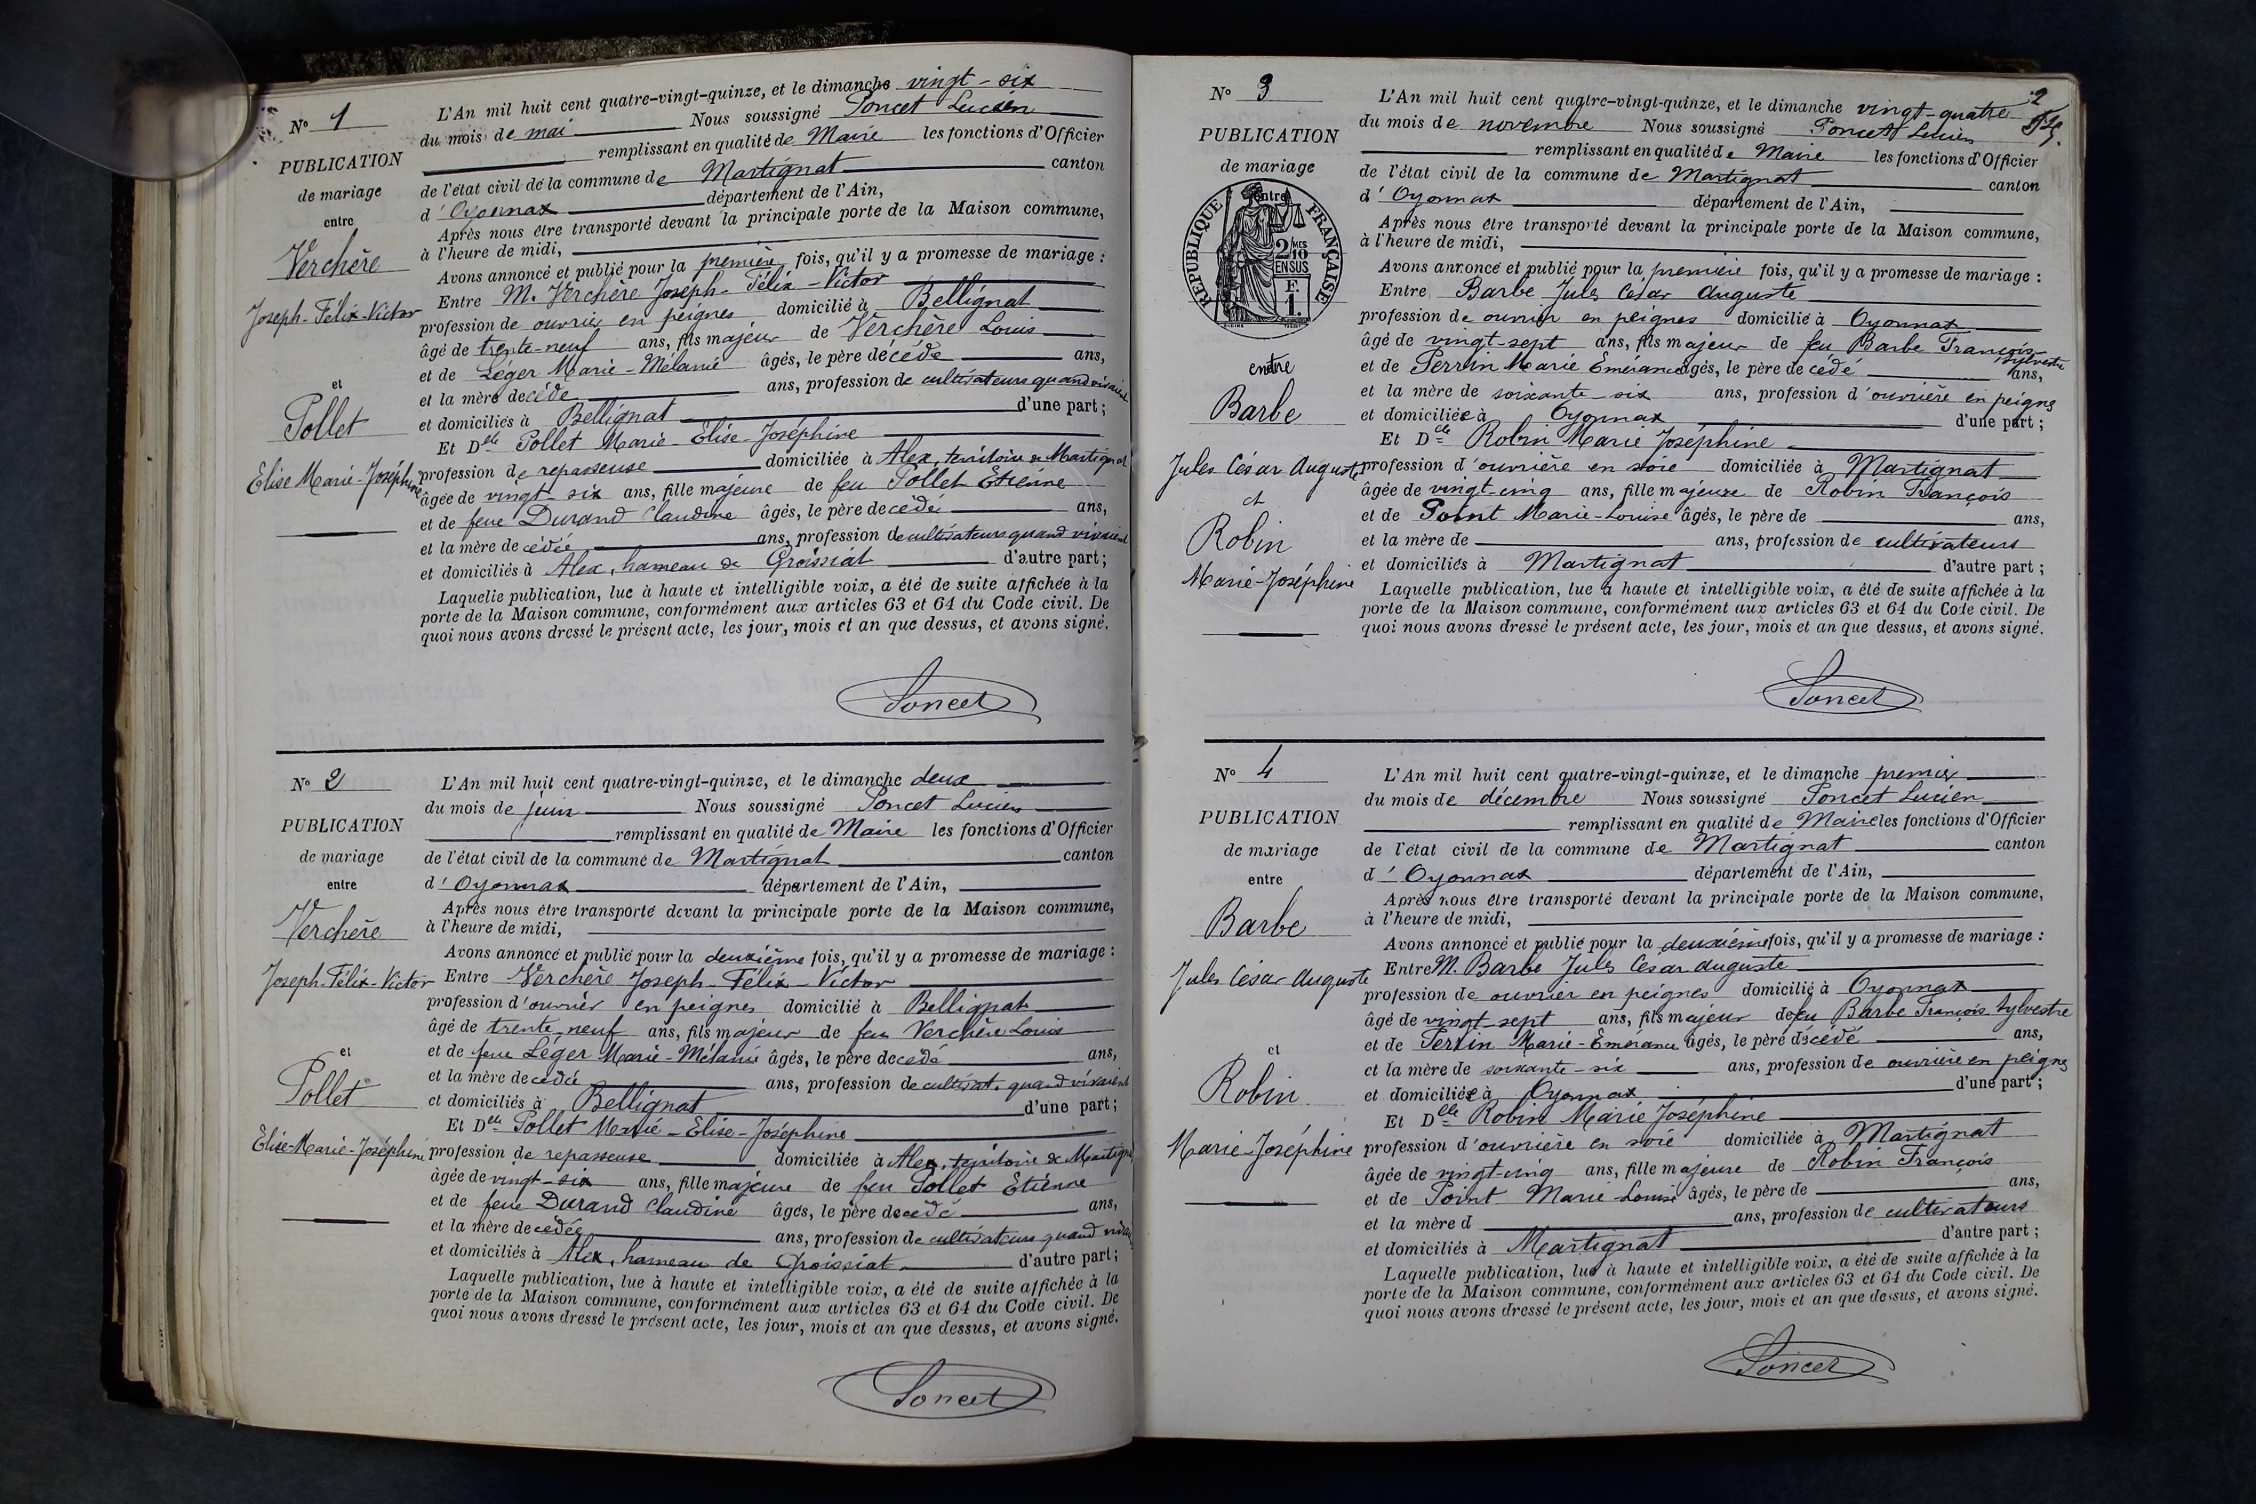 N° 1
PUBLICATION
de mariage
entre
Verchère
Joseph-Félix-Victor
et
Pollet
Elise Marie-Joséphine
L'An mil huit cent quatre-vingt-quinze, et le dimanche vingt-six
du mois de mai Nous soussigné Poncet Lucien
remplissant en qualité de Maire les fonctions d'Officier
de l'état civil de la commune de Martignat canton
d'Oyonnax département de l'Ain,
Après nous être transporté devant la principale porte de la Maison commune,
à l'heure de midi,
Avons annoncé et publié pour la première fois, qu'il y a promesse de mariage :
Entre M. Verchère Joseph-Félix-Victor
profession de ouvrier en peignes domicilié à Bellignat
âgé de trente-neuf ans, fils majeur de Verchère Louis
et de Léger Marie-Mélanie âgés, le père décédé ans,
et la mère décédé ans, profession de cultivateurs quand vivaient
et domiciliés à Bellignat d'une part ;
Et Delle Pollet Marie-Elise-Joséphine
profession de repasseuse domiciliée à Alex, territoire de Martignat
âgée de vingt-six ans, fille majeure de feu Pollet Etienne
et de feue Durand Claudine âgés, le père décédé ans,
et la mère décédée ans, profession de cultivateurs quand vivaient
et domiciliés à Alex, hameau de Groissiat d'autre part ;
Laquelle publication, lue à haute et intelligible voix, a été de suite affichée à la
porte de la Maison commune, conformément aux articles 63 et 64 du Code civil. De
quoi nous avons dressé le présent acte, les jour, mois et an que dessus, et avons signé.
Poncet
N° 2
PUBLICATION
de mariage
entre
Verchère
Joseph-Félix-Victor
et
Pollet
Elise-Marie-Joséphine
L'An mil huit cent quatre-vingt-quinze, et le dimanche deux
du mois de juin Nous soussigné Poncet Lucien
remplissant en qualité de Maire les fonctions d'Officier
de l'état civil de la commune de Martignat canton
d'Oyonnax département de l'Ain,
Après nous être transporté devant la principale porte de la Maison commune,
à l'heure de midi,
Avons annoncé et publié pour la deuxième fois, qu'il y a promesse de mariage :
Entre Verchère Joseph-Félix-Victor
profession d'ouvrier en peignes domicilié à Bellignat
âgé de trente-neuf ans, fils majeur de feu Verchère Louis
et de feue Léger Marie-Mélanie âgés, le père décédé ans,
et la mère décédée ans, profession de cultivat. quand vivaient
et domiciliés à Bellignat d'une part ;
Et Delle Pollet Marie-Elise-Joséphine
profession de repasseuse domiciliée à Alex, territoire de Martignat
âgée de vingt-six ans, fille majeure de feu Pollet Etienne
et de feue Durand Claudine âgés, le père décédé ans,
et la mère décédée ans, profession de cultivateurs quand vivaient
et domiciliés à Alex, hameau de Groissiat d'autre part ;
Laquelle publication, lue à haute et intelligible voix, a été de suite affichée à la
porte de la Maison commune, conformément aux articles 63 et 64 du Code civil. De
quoi nous avons dressé le présent acte, les jour, mois et an que dessus, et avons signé.
Poncet
2
N° 3
PUBLICATION
de mariage
entre
RÉPUBLIQUE FRANÇAISE
2/10 MES
EN SUS
F.
1.
entre
Barbe
Jules César Auguste
et
Robin
Marie-Joséphine
L'An mil huit cent quatre-vingt-quinze, et le dimanche vingt-quatre
du mois de novembre Nous soussigné Poncet Lucien
remplissant en qualité de Maire les fonctions d'Officier
de l'état civil de la commune de Martignat canton
d'Oyonnax département de l'Ain,
Après nous être transporté devant la principale porte de la Maison commune,
à l'heure de midi,
Avons annoncé et publié pour la première fois, qu'il y a promesse de mariage :
Entre Barbe Jules César Auguste
profession de ouvrier en peignes domicilié à Oyonnax
âgé de vingt-sept ans, fils majeur de feu Barbe François
Sylvestre
et de Perrin Marie Emérance âgés, le père décédé ans,
et la mère de soixante-six ans, profession d'ouvrière en peignes
et domiciliée à Oyonnax d'une part ;
Et Delle Robin Marie Joséphine
profession d'ouvrière en soie domiciliée à Martignat
âgée de vingt-cinq ans, fille majeure de Robin François
et de Point Marie-Louise âgés, le père de ans,
et la mère de ans, profession de cultivateurs
et domiciliés à Martignat d'autre part ;
Laquelle publication, lue à haute et intelligible voix, a été de suite affichée à la
porte de la Maison commune, conformément aux articles 63 et 64 du Code civil. De
quoi nous avons dressé le présent acte, les jour, mois et an que dessus, et avons signé.
Poncet
N° 4
PUBLICATION
de mariage
entre
Barbe
Jules César Auguste
et
Robin
Marie-Joséphine
L'An mil huit cent quatre-vingt-quinze, et le dimanche premier
du mois de décembre Nous soussigné Poncet Lucien
remplissant en qualité de Maire les fonctions d'Officier
de l'état civil de la commune de Martignat canton
d'Oyonnax département de l'Ain,
Après nous être transporté devant la principale porte de la Maison commune,
à l'heure de midi,
Avons annoncé et publié pour la deuxième fois, qu'il y a promesse de mariage :
Entre M. Barbe Jules César Auguste
profession de ouvrier en peignes domicilié à Oyonnax
âgé de vingt-sept ans, fils majeur de feu Barbe François Sylvestre
et de Perrin Marie-Emérance âgés, le père décédé ans,
et la mère de soixante-six ans, profession de ouvrière en peignes
et domiciliée à Oyonnax d'une part ;
Et Delle Robin Marie Joséphine
profession d'ouvrière en soie domiciliée à Martignat
âgée de vingt-cinq ans, fille majeure de Robin François
et de Point Marie-Louise âgés, le père de ans,
et la mère d ans, profession de cultivateurs
et domiciliés à Martignat d'autre part ;
Laquelle publication, lue à haute et intelligible voix, a été de suite affichée à la
porte de la Maison commune, conformément aux articles 63 et 64 du Code civil. De
quoi nous avons dressé le présent acte, les jour, mois et an que dessus, et avons signé.
Poncet